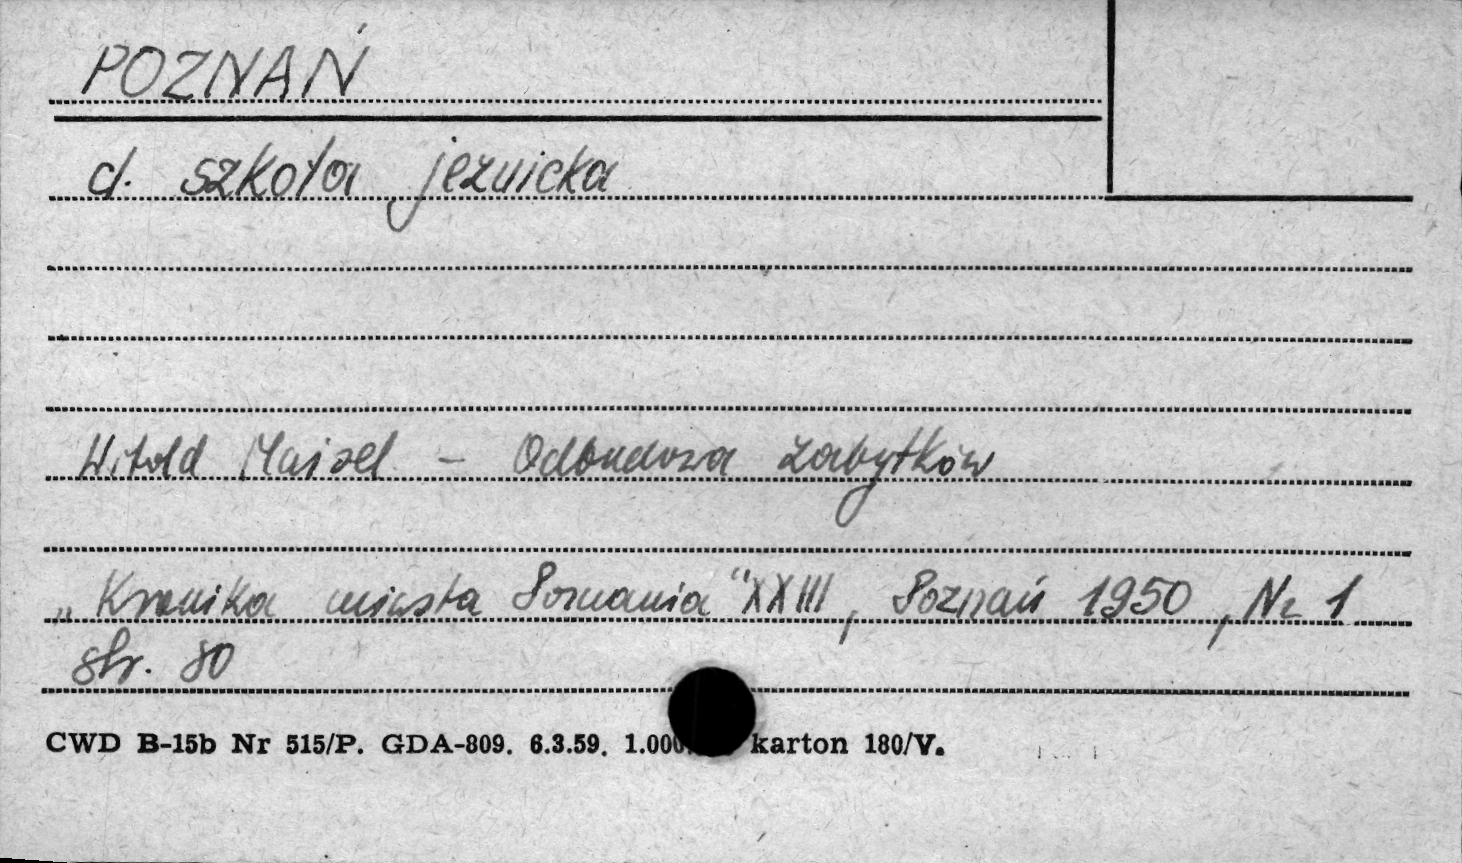 POZNAŃ
d. szkoła jezuicka
Witold Maisel – Odbudowa zabytków
„Kronika miasta Poznania" XXIII, Poznań 1950, Nr 1
str. 80
CWD B-15b Nr 515/P. GDA-809. 6.3.59. 1.000 karton 180/V.